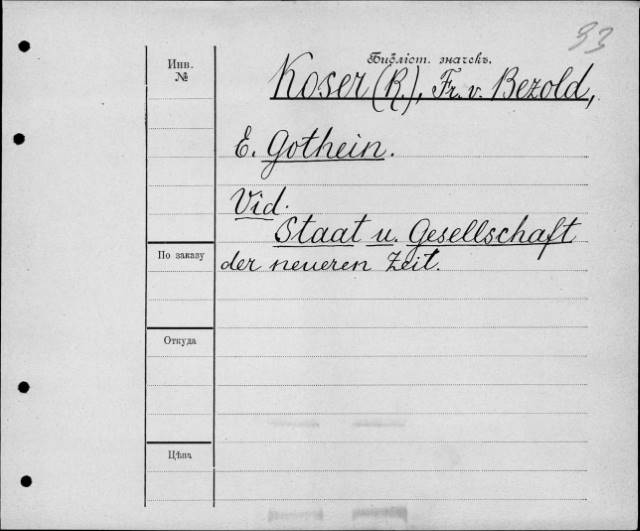 33
Инв.
№
Библіот. значекъ.
Koser (R.), Fr. v. Bezold,
E. Gothein.
Vid.
Staat u. Gesellschaft
der neueren Zeit.
По заказу
Откуда
Цѣна